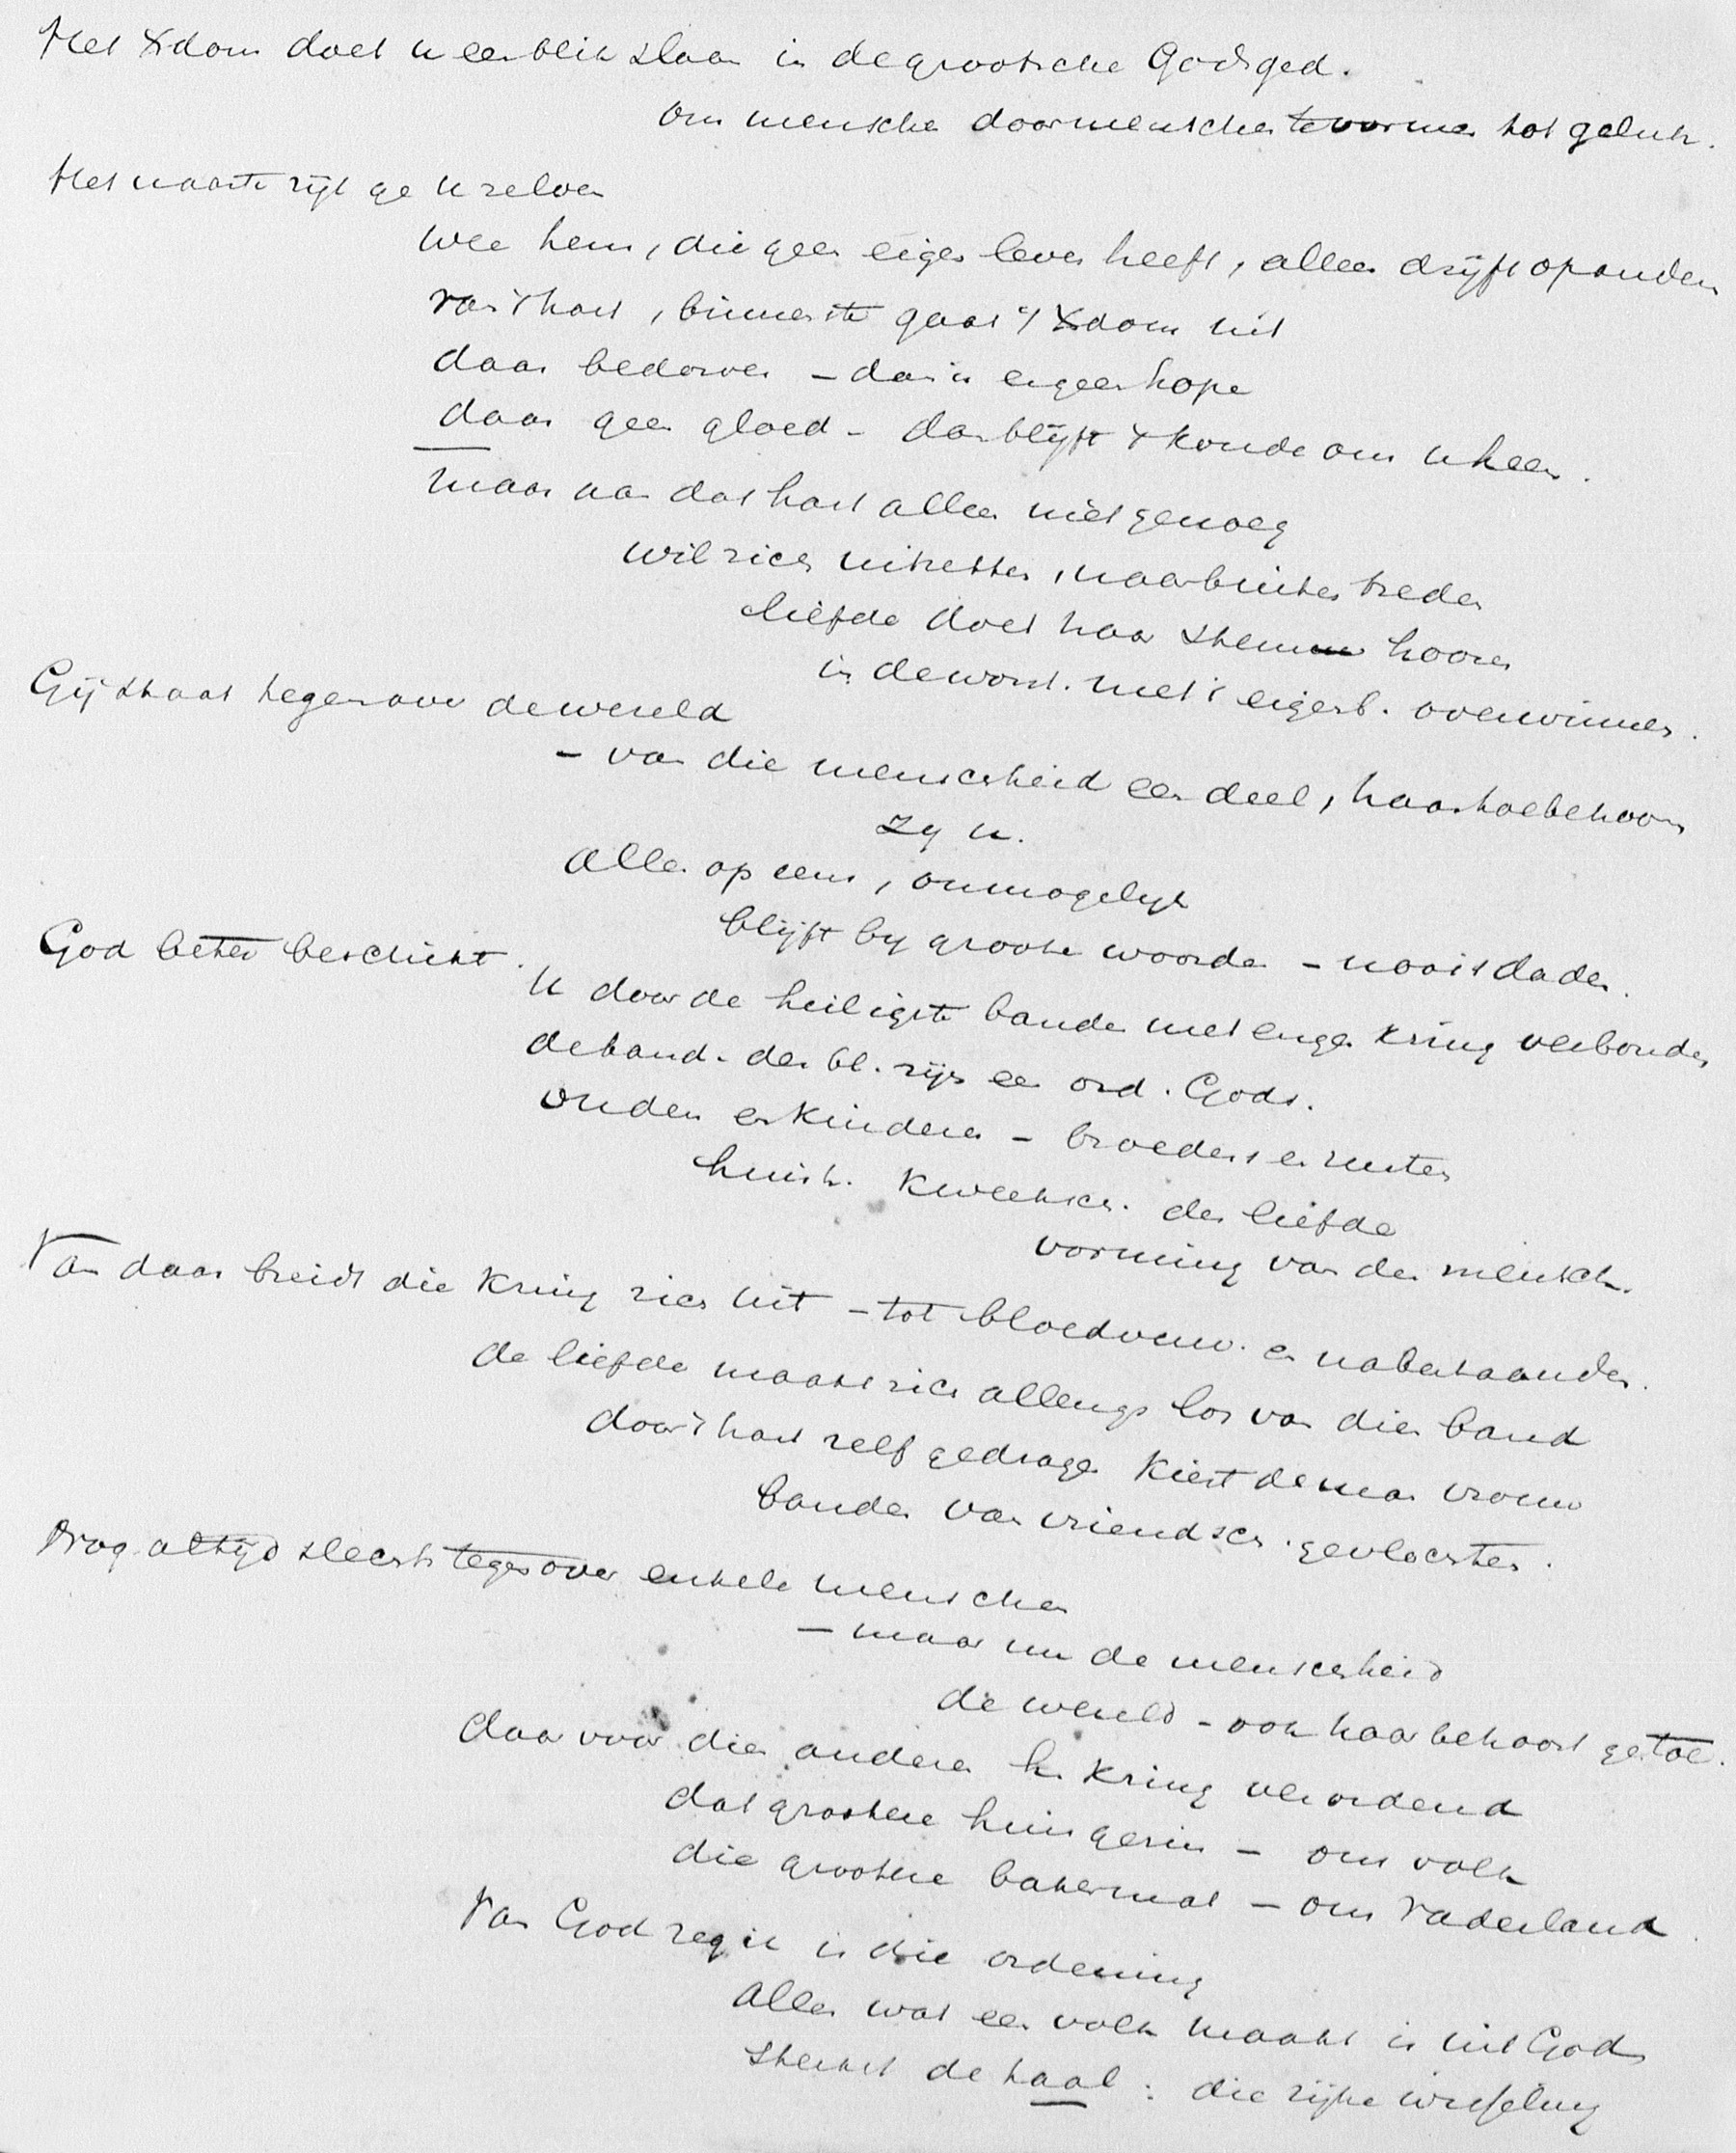 Het Xdom doet u een blik slaan in de grootsche Godsged.
om menschen door menschen te vormen tot geluk.
Het naaste zijt ge u zelven
wee hem, die geen eigen leven heeft, alleen drijft op anderen
van 't hart, binnenste gaat 't Xdom uit
daar bedorven – dan is er geen hope
daar geen gloed – dan blijft 't koude om u heen.
maar aan dat hart alleen niet genoeg
wil zich uitzetten, naar buiten treden
liefde doet haar stem hooren
in de worst. met 't eigenb. overwinnen.
Gij staat tegenover de wereld
– van die menschheid een deel, haar toebehooren
zij u.
allen op eens, onmogelijk
blijft bij groote woorden – nooit daden.
God beter beschikt.
U door de heiligste banden met enger kring verbonden
de band. des bl. zijn een ord. Gods.
ouders en kinderen – broeders en zusters
huish. kweeksch. der liefde
vorming van den mensch.
Van daar breidt die kring zich uit – tot bloedverw. en nabestaanden.
de liefde maakt zich allengs los van dien band
door 't hart zelf gedragen kiest de man vrouw
banden van vriendsch. gevlochten.
Nog altijd slechts tegenover enkele menschen
– maar nu de menschheid
de wereld – ook haar behoort ge toe.
daarvoor dien anderen h. kring verordend
dat grootere huisgezin – ons volk
die grootere bakermat – ons Vaderland.
Van God zeg ik is die ordening
alles wat een volk maakt is uit God
sterkst de taal: die rijke wisseling